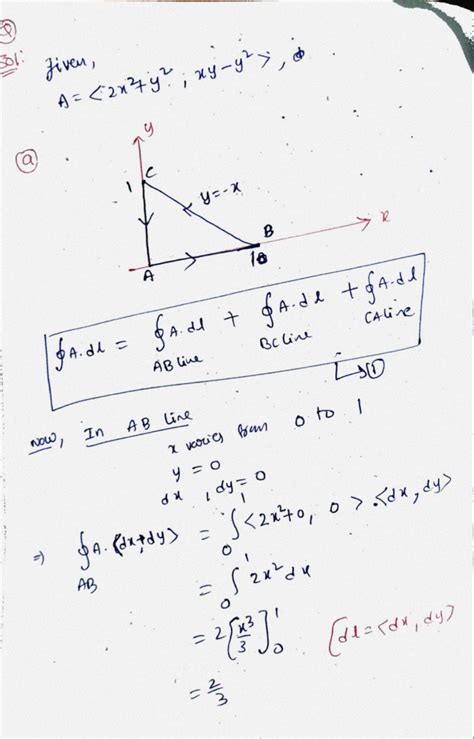 Q
Sol:
Given,
A = <2x²+y² , xy-y²>,
(a)
y
1 C
y=-x
B
x
A
1
∮A.dl = ∮A.dl + ∮A.dl + ∮A.dl
AB line BC line CA line
↳①
Now, In AB line
x varies from 0 to 1
y = 0
dx , dy = 0
⇒ ∮A.<dx,dy> = ∫₀¹<2x²+0, 0>.<dx, dy>
AB
= ∫₀¹ 2x² dx
= 2[x³/3]₀¹ [dl = <dx, dy>
= 2/3